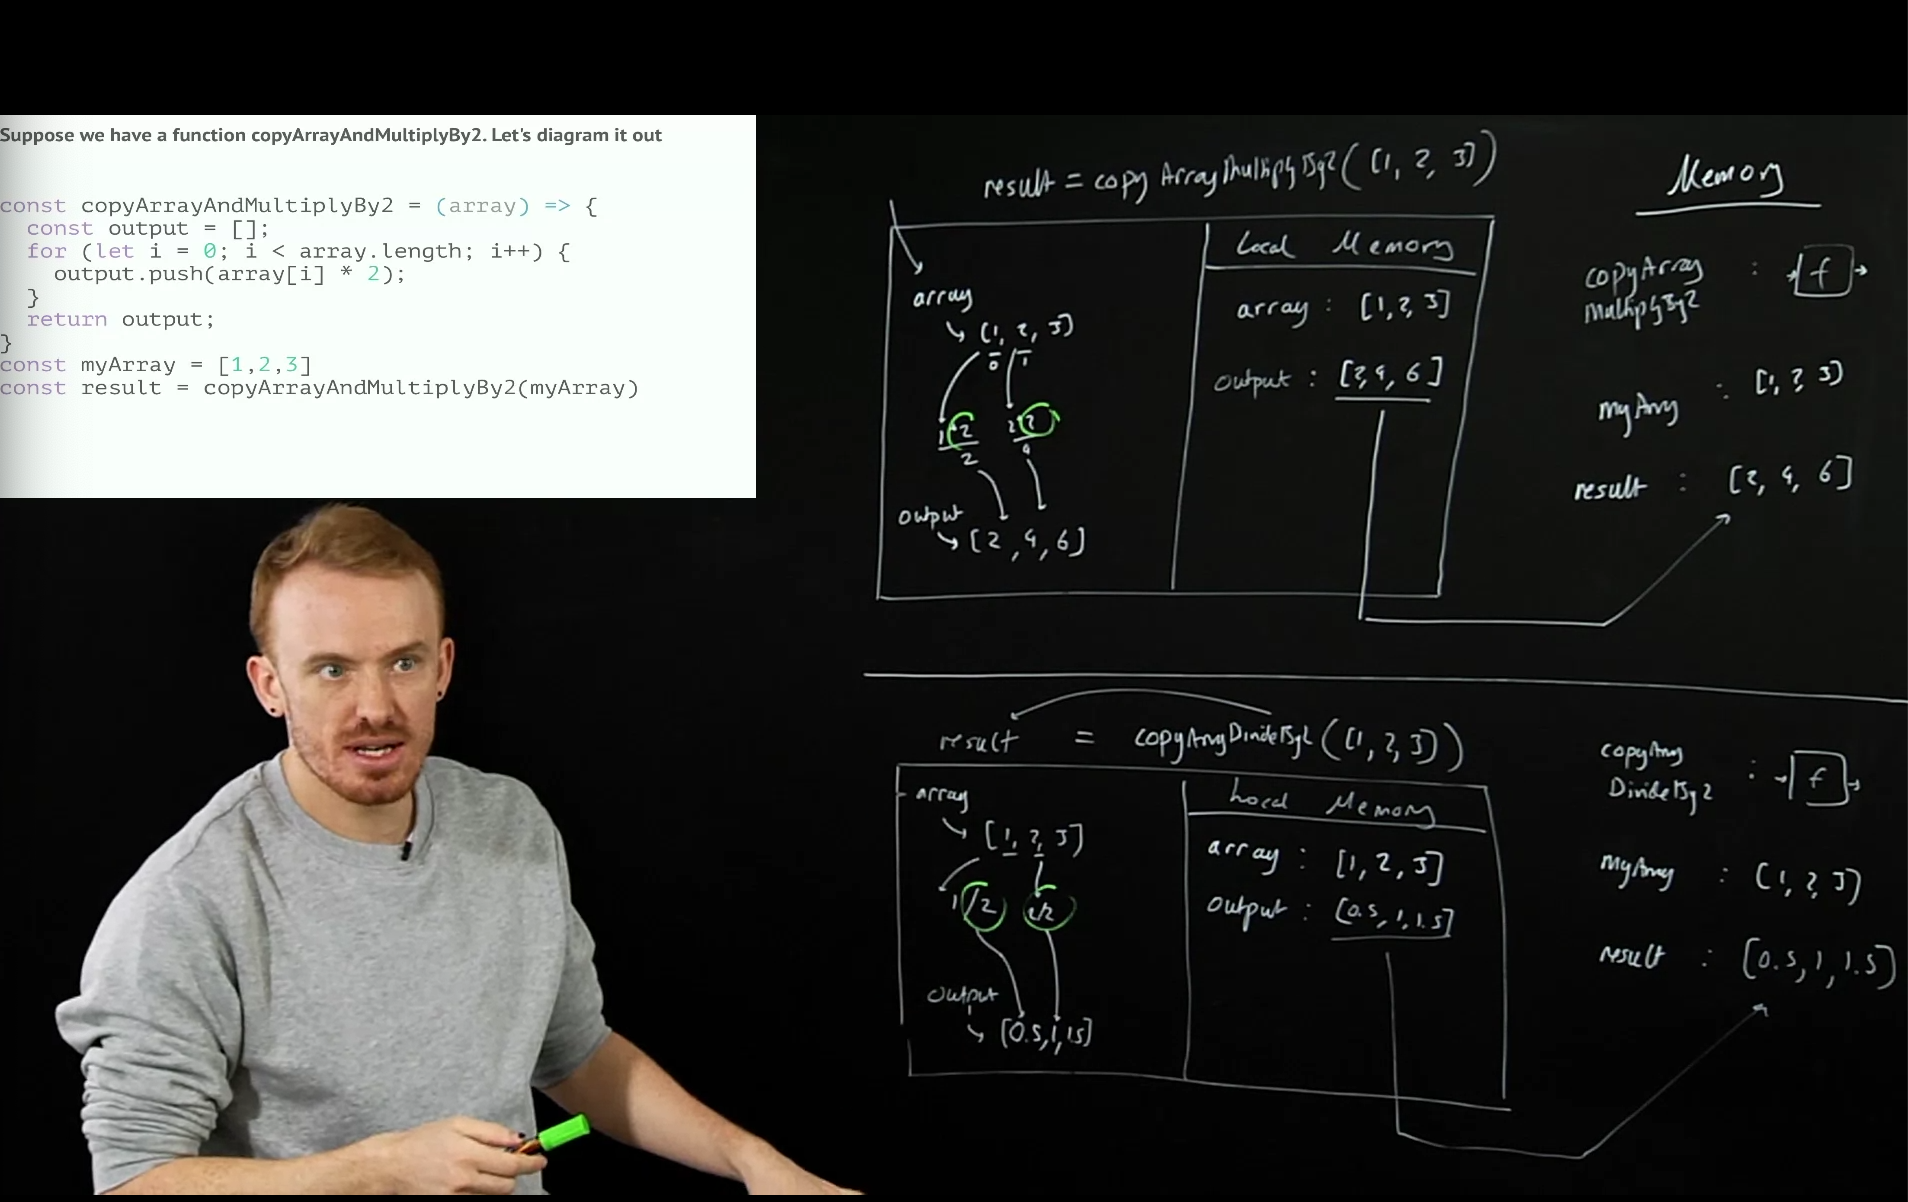 Suppose we have a function copyArrayAndMultiplyBy2. Let's diagram it out
const copyArrayAndMultiplyBy2 = (array) => {
const output = [];
for (let i = 0; i < array.length; i++) {
output.push(array[i] * 2);
}
return output;
}
const myArray = [1,2,3]
const result = copyArrayAndMultiplyBy2(myArray)
result = copy ArrayMultiplyBy2 ([1, 2, 3])
array
[1, 2, 3]
0 1
1*2 2*2
2 4
output
[2, 4, 6]
Local Memory
array : [1, 2, 3]
output : [2, 4, 6]
Memory
copyArray : f
MultiplyBy2
myArray : [1, 2, 3]
result : [2, 4, 6]
result = copyArrayDivideBy2 ([1, 2, 3])
array
[1, 2, 3]
1/2 2/2
output
[0.5, 1, 1.5]
Local Memory
array : [1, 2, 3]
output : [0.5, 1, 1.5]
copyArray : f
DivideBy2
myArray : [1, 2, 3]
result : [0.5, 1, 1.5]